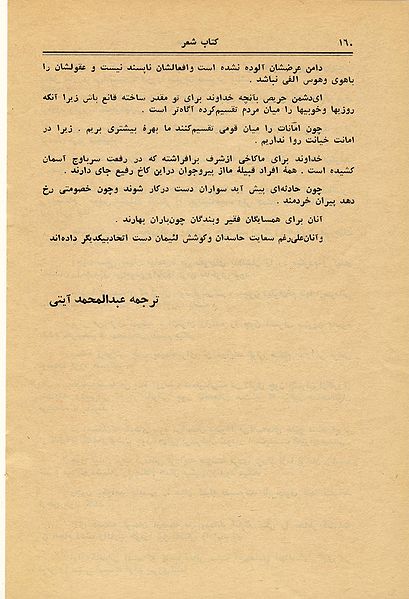 ۱۶۰ کتاب شعر
دامن عرضشان آلوده نشده است وافعالشان ناپسند نیست و عقولشان را
باهوی وهوس الفی نباشد .
ای‌دشمن حریص بآنچه خداوند برای تو مقدر ساخته قانع باش زیرا آنکه
روزیها وخوبیها را میان مردم تقسیم‌کرده آگاه‌تر است .
چون امانات را میان قومی تقسیم‌کنند ما بهرهٔ بیشتری بریم . زیرا در
امانت خیانت روا نداریم .
خداوند برای ماکاخی ازشرف برافراشته که در رفعت سرباوج آسمان
کشیده است . همهٔ افراد قبیلهٔ مااز پیروجوان دراین کاخ رفیع جای دارند .
چون حادثه‌ای پیش آید سواران دست درکار شوند وچون خصومتی رخ
دهد پیران خردمند .
آنان برای همسایگان فقیر وبندگان چون‌باران بهارند .
وآنان‌علی‌رغم سعایت حاسدان وکوشش لئیمان دست اتحادبیکدیگر داده‌اند
ترجمه عبدالمحمد آیتی